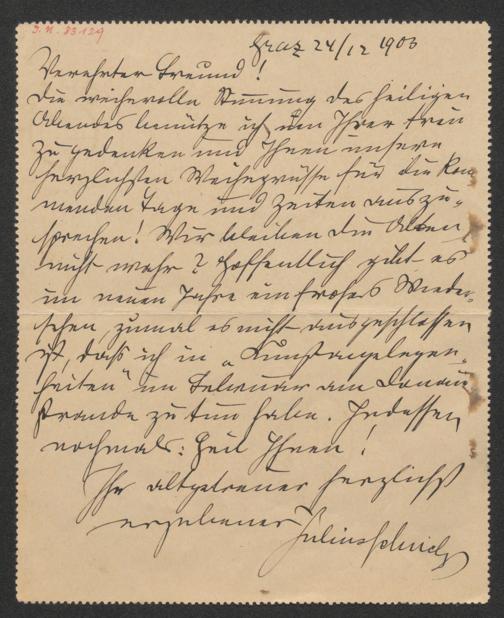 I.N. 83.129
Graz 24/12 1903
Verehrter Freund!
Die weihevolle Stimmung des heiligen
Abendes benütze ich um Ihrer treu
zu gedenken und Ihnen unsere
herzlichsten Weihegrüsse für die kom
menden Tage und Zeiten auszu-
sprechen! Wir bleiben die Alten,
nicht wahr? Hoffentlich gibt es
im neuen Jahre ein frohes Wieder-
sehen, zumal es nicht ausgeschlossen
ist, dass ich in „Kunstangelegen-
heiten" im Februar am Donau
strande zu tun habe. Indessen
nochmals: Heil Ihnen!
Ihr altgetreuer herzlichst
ergebener
Julius